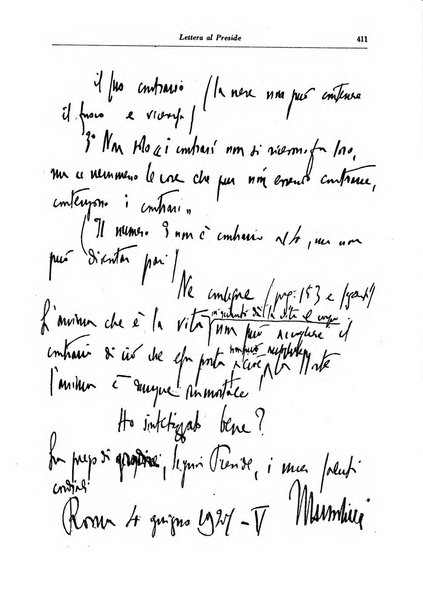 Lettera al Preside 411
il suo contrario (la neve non può contenere
il fuoco e viceversa)
3° Non solo « i contrari non si ricevono fra loro,
ma e nemmeno le cose che pur non essendo contrarie,
contengono i contrari »
(Il numero 3 non è contrario al 4, ma non
può diventar pari)
Ne consegue (pag: 153 e seguenti)
in quanto dà la vita e
L'anima che è la vita non può accogliere il
contrario di ciò che essa porta e cioè la Morte
l'anima è dunque immortale!
Ho sintetizzato bene?
La prego di gradire, signor Preside, i miei saluti
cordiali
Roma 4 giugno 1927 - V Mussolini